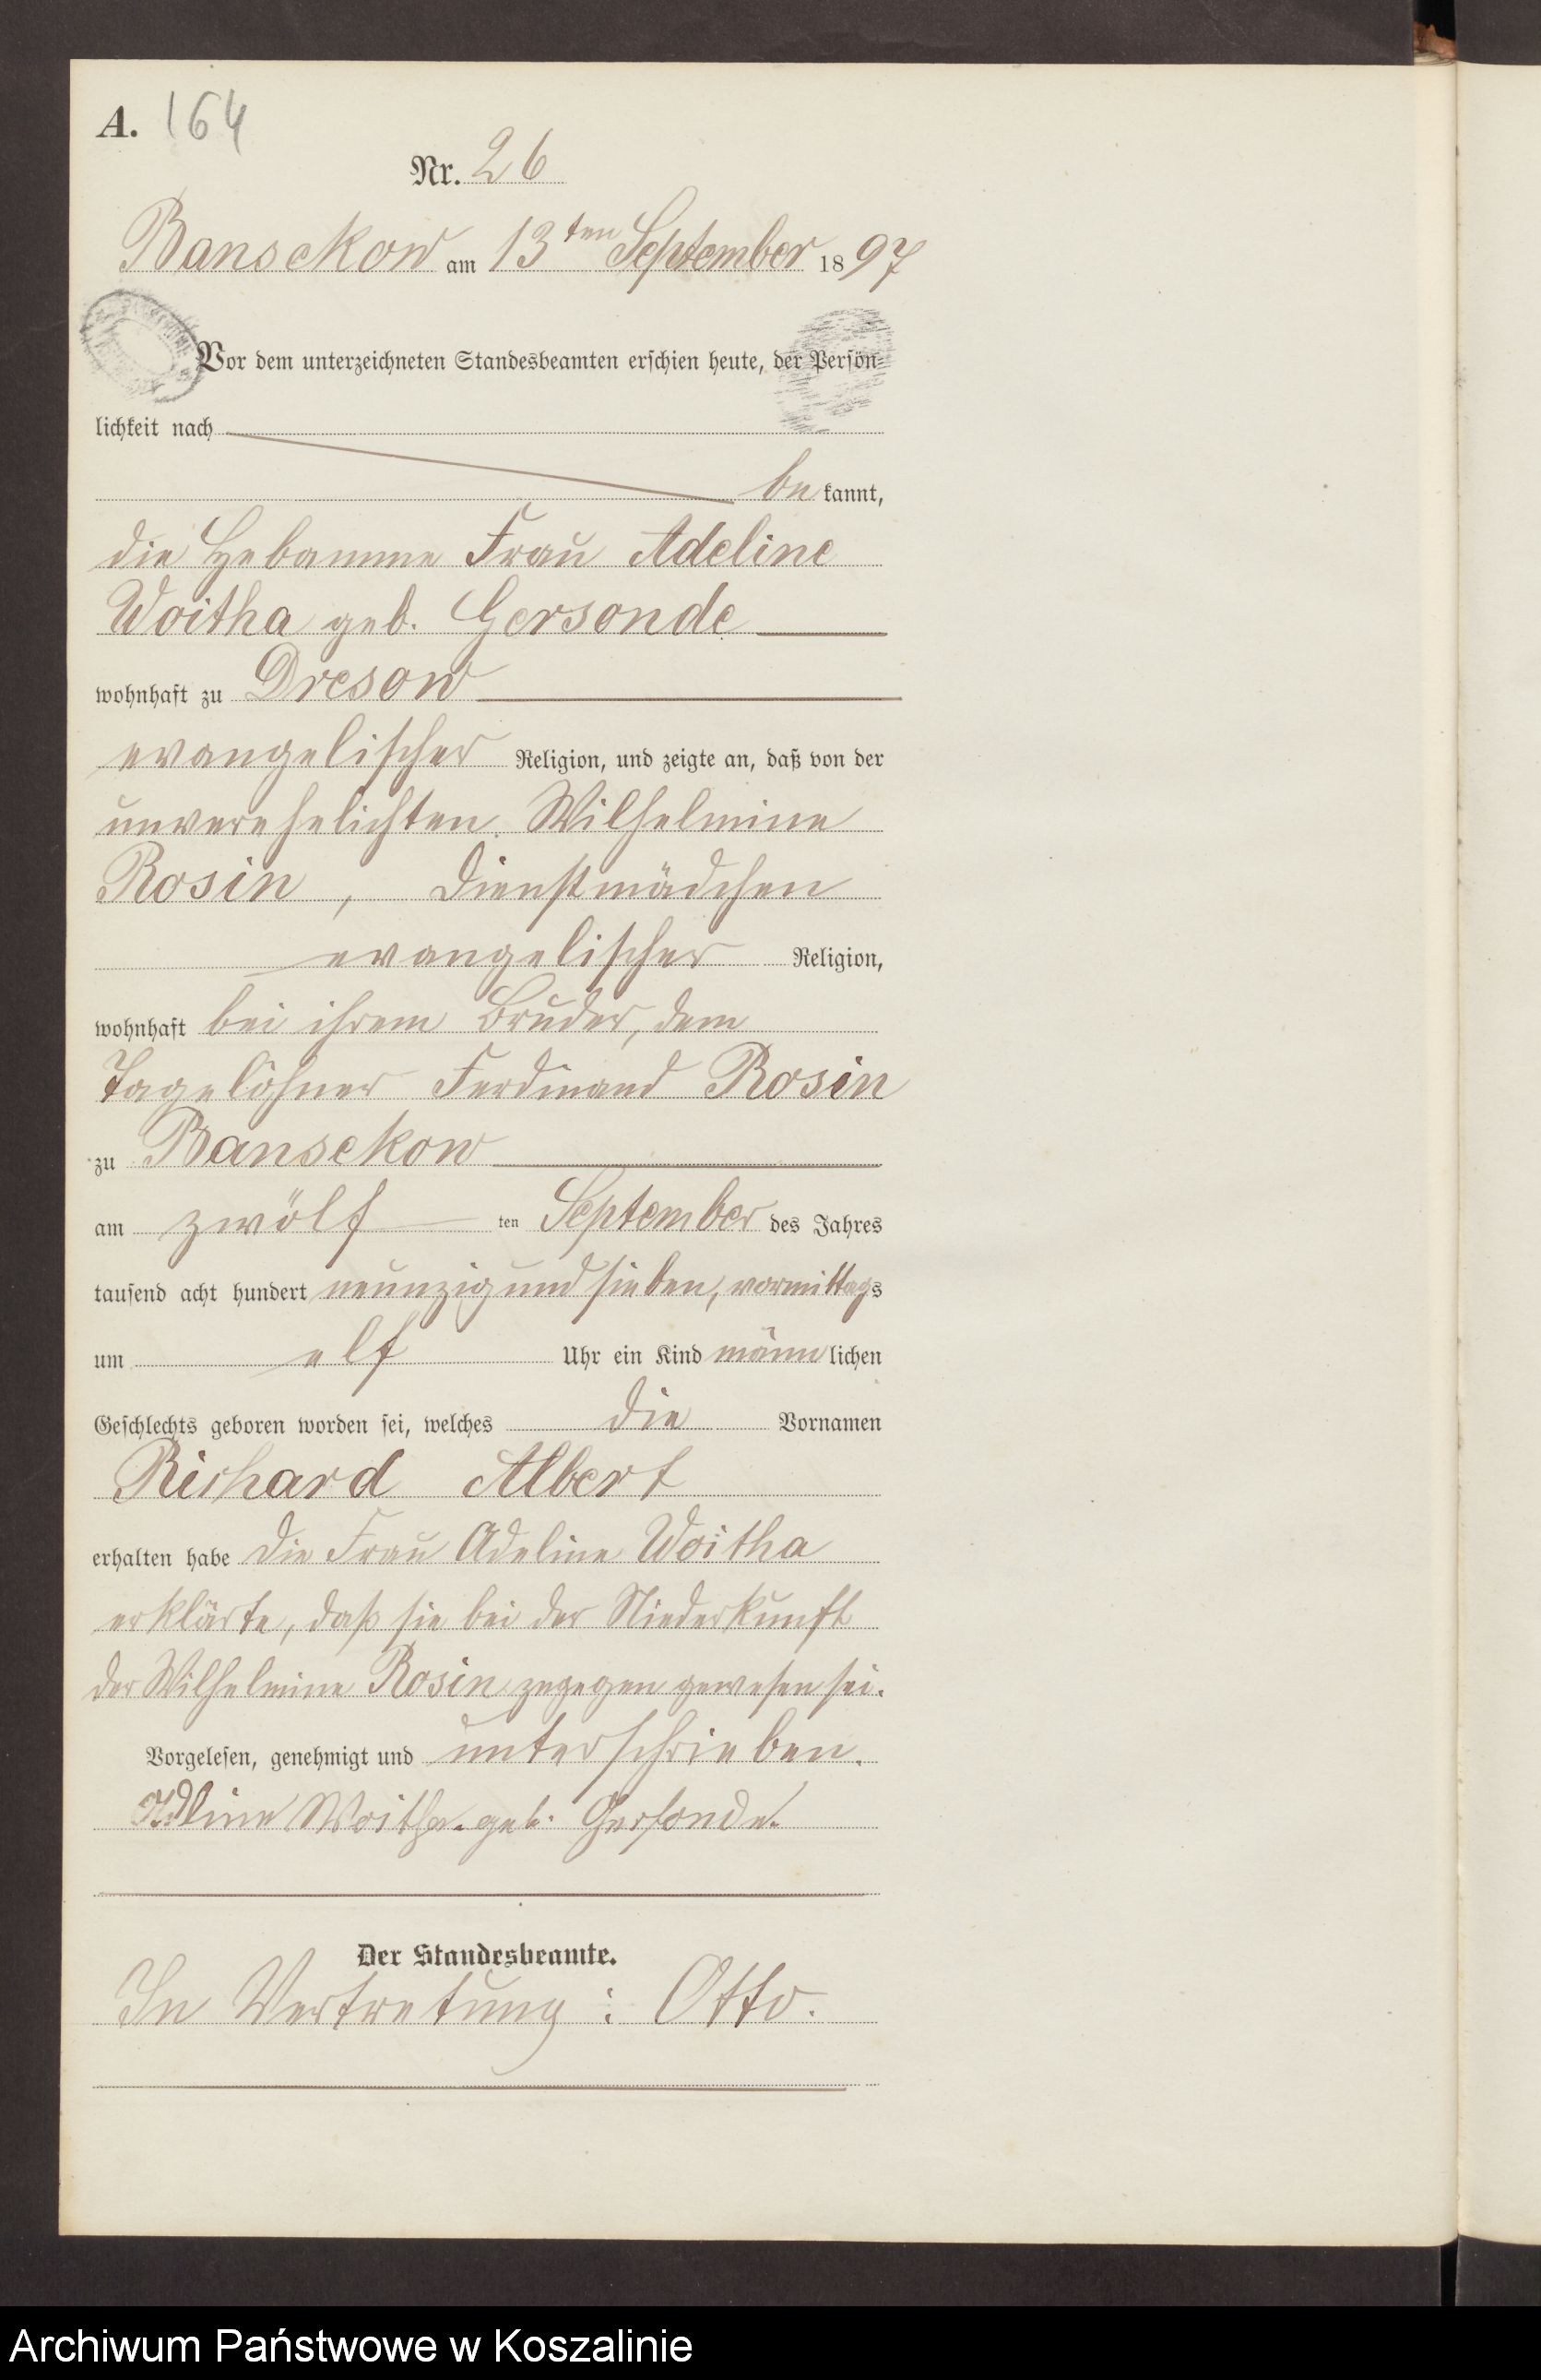 A. 164
Nr. 26
Bansekow am 13ten September 1897
Vor dem unterzeichneten Standesbeamten erschien heute, der Persön-
lichkeit nach
bekannt,
die Hebamme Frau Adeline
Woitha geb. Gersonde
wohnhaft zu Dresow
evangelischer Religion, und zeigte an, daß von der
unverehelichten Wilhelmine
Rosin, Dienstmädchen
evangelischer Religion,
wohnhaft bei ihrem Bruder, dem
Tagelöhner Ferdinand Rosin
zu Bansekow
am zwölf ten September des Jahres
tausend acht hundert neunzig und sieben, vormittags
um elf Uhr ein Kind männlichen
Geschlechts geboren worden sei, welches die Vornamen
Richard Albert
erhalten habe Die Frau Adeline Woitha
erklärte, daß sie bei der Niederkunft
der Wilhelmine Rosin zugegen gewesen sei.
Vorgelesen, genehmigt und unterschrieben.
Woitha geb. Gersonde.
Der Standesbeamte.
In Vertretung: Otto.
Archiwum Państwowe w Koszalinie